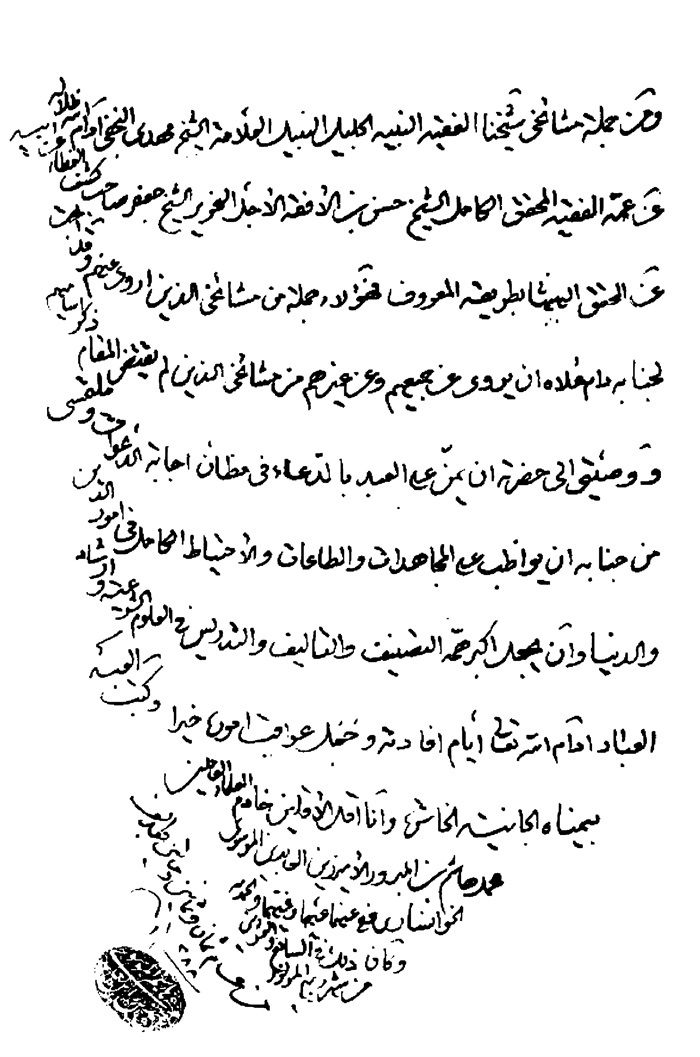 ومن جملة مشائخي شيخنا الفقيه النبيه الجليل النبيل العلامة الشيخ مهدي النجفي ادام الله ظلاله
عن عمه الفقيه المحقق الكامل الشيخ حسن بن الأفقه الاجل الغرير الشيخ جعفر صاحب كشف الغطاء عن ابيه
عن المحقق البهبهاني بطريقه المعروف فهؤلاء جملة من مشائخي الذين اروي عنهم وقد ذكر اساميهم
لجنابه دام علاه ان يروي عن جميعهم وعن غيرهم من مشائخي الذين لم يقتض المقام
ووصيتي الى حضرته ان يمن على العبد بالدعاء في مظان اجابة الدعوات وملتمسي
من جنابه ان يواظب على المجاهدات والطاعات والاحتياط الكامل في امور الدين
والدنيا وان يجعل اكبر همه التصنيف والتاليف والتدريس في العلوم الشرعية وارشاد
العباد ادام الله تعالى أيام افادته وجعل عواقب امورنا خيرا وكتب العبد
بيمناه الجانية الخاسرة وانا اقل الأقلين خادم العلماء العاملين
محمد هاشم بن المبرور الأمير زين العابدين الموسوي
الخوانساري
وكان ذلك في السابع
من شهر ربيع المولود